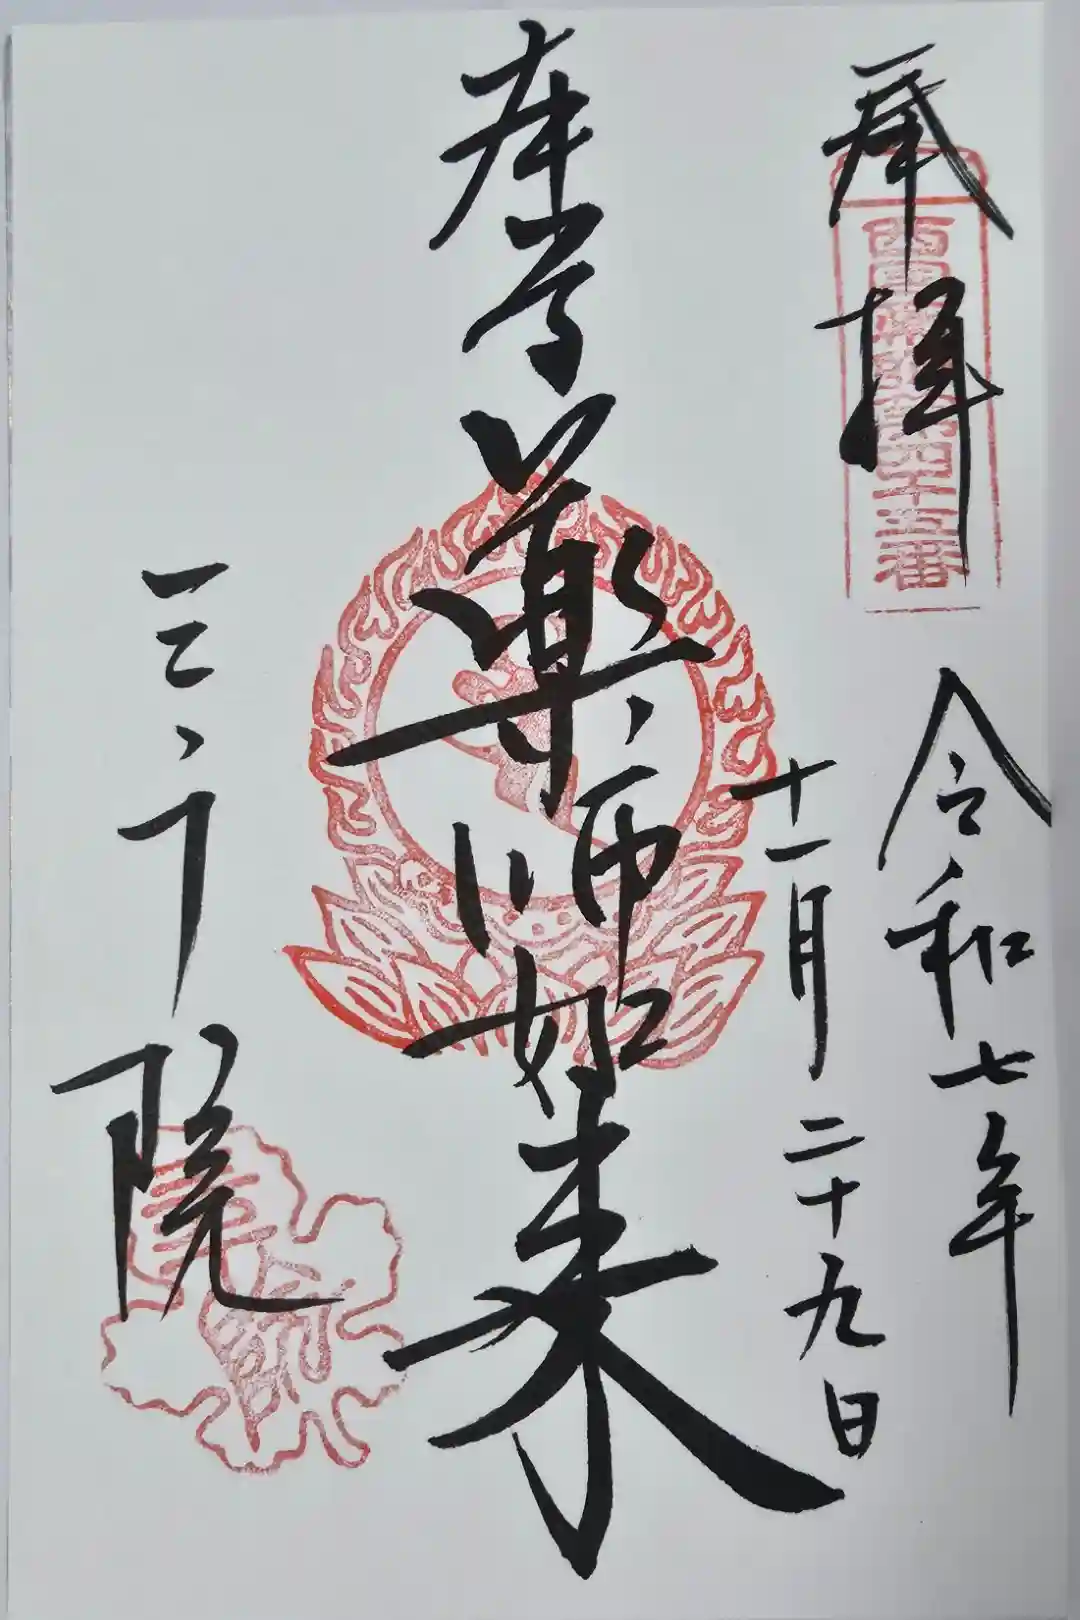 奉拝
西国薬師第四十五番
令和七年
十一月二十九日
薬師如来
三千院